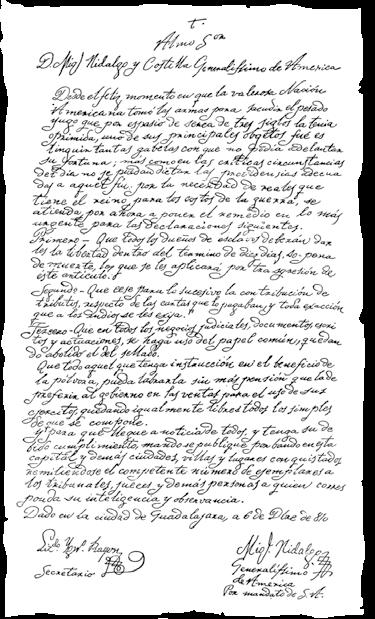 t.
Almo Sor
D. Migl Hidalgo y Costilla Generalissimo de America
Desde el feliz momento en que la valerosa Nación
Americana tomó las armas para sacudir el pesado
yugo que por espasio de serca de tres siglos la tuvo
oprimida, uno de sus principales obgetos fué es
tinguir tantas gabelas con que no podia adelantar
su fortuna; más como en las criticas circunstancias
del dia no se puedan dictar las providensias adecua
das a aquel fin. por la necesidad de reales que
tiene el reino, para los costos de la guerra, se
atienda por ahora a poner el remedio en lo más
urgente para las declaraciones siguientes.
Primero – Que todos los dueños de esclavos deberán dar
les la libertad dentro del termino de diez dias, so-pena
de muerte, la que se les aplicará por trasgresion de
este articulo.
Segundo – Que cese para lo sucesivo la contribución de
tributos, respecto de las castas que lo pagaban, y toda exacción
que a los indios se les exija."
Tercero – Que en todos los negocios judiciales, documentos escri
tos y actuaciones, se haga uso del papel común, quedan
do abolido el del sellado.
Que todo aquel que tenga instrucción en el beneficio de
la pólvora, pueda labrarla sin más pensión que la de
preferir al gobierno en las ventas para el uso de sus
ejercitos, quedando igualmente libres todos los simples
de que se compone.
Y para que llegue a noticia de todos, y tenga su de
bido cumplimiento, mando se publique por bando en esta
capital y demás ciudades, villas y lugares conquistados
remitiéndose el competente número de ejemplares a
los tribunales, jueces y demás personas a quien corres
ponda su inteligencia y observancia.
Dado en la ciudad de Guadalajara, a 6 de Dbre de 810
Secretario
Migl Hidalgo
Generalissimo
de America
Por mandato de S.A.